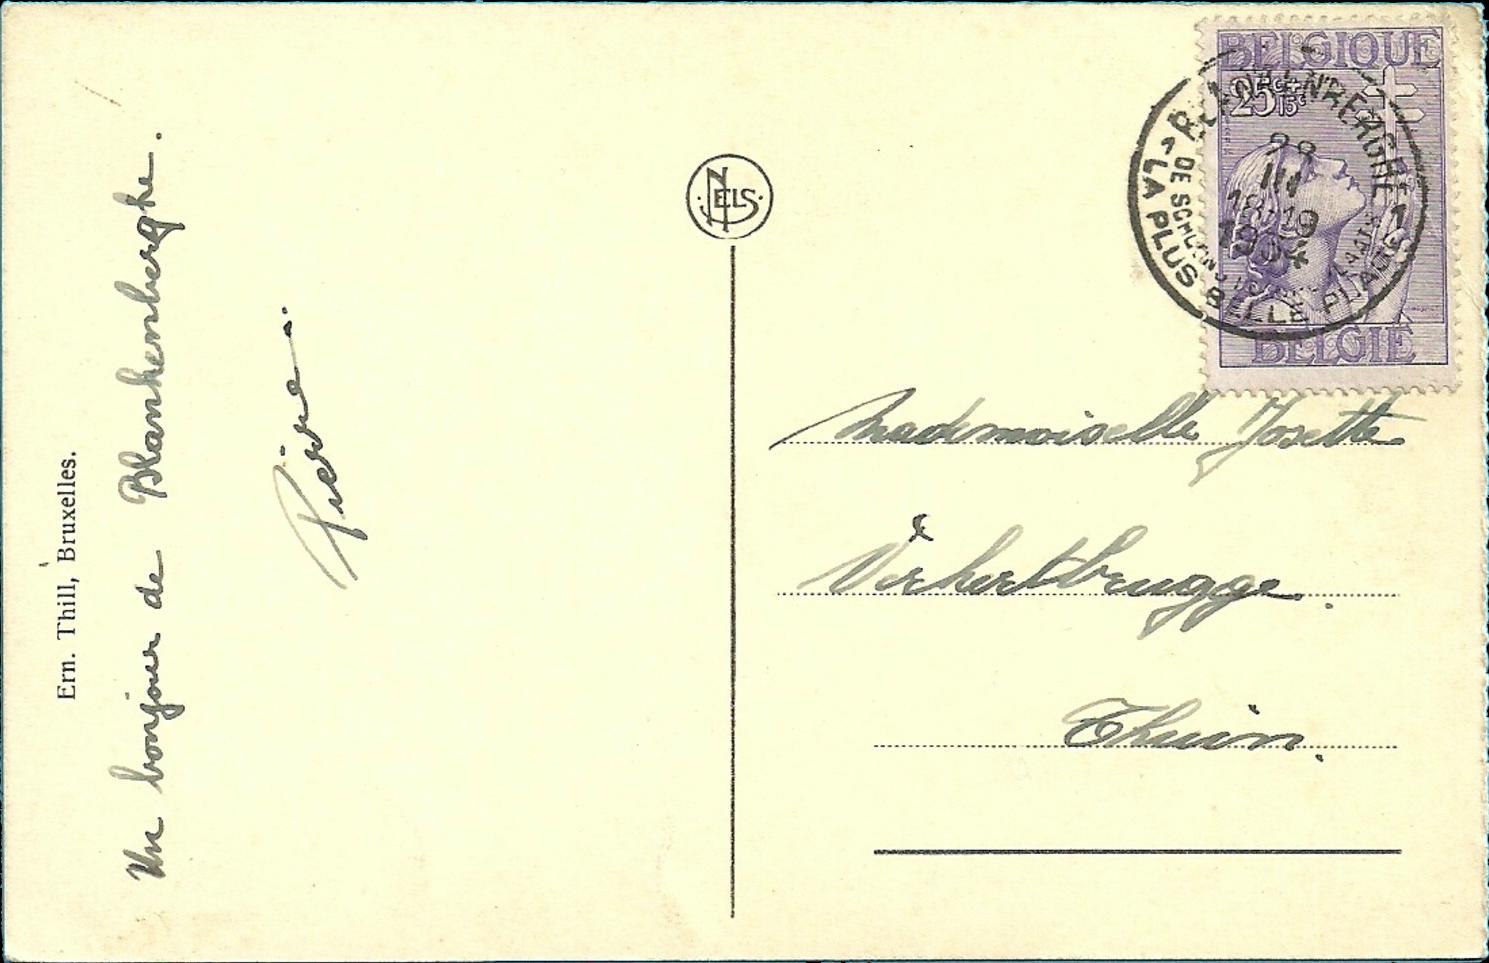 Ern. Thill, Bruxelles.
Un bonjour de Blankenberghe.
Pierre.
NELS
BELGIQUE
25c 15c
BELGIË
BLANKENBERGHE 1
28
III
18-19
1934
LA PLUS BELLE PLAGE
DE SCHOONSTE
Mademoiselle Josette
Verhertbrugge.
Thuin.